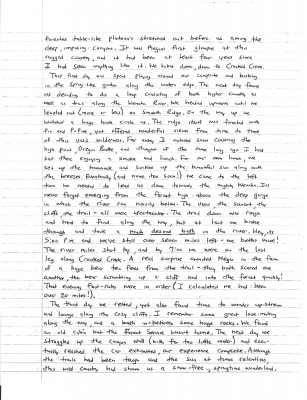 forested table-like plateaus stretched out before us among the
deep, imposing canyon. It was Megan's first glimpse at this
rugged country, and it had been at least four years since
I had seen anything like it. We hiked down, down to Crooked Creek.
That first day was spent playing around our campsite and basking
in the spring-like garden along the waters edge. The next day found
us deciding to do a loop consisting of both higher country as
well as that along the Wenaha River. We headed upward until we
leveled out (more or less) on Smooth Ridge. On the way up we
watched a huge hawk circle us. The ridge itself was forested with
fir and pine, yet offered wonderful views from time to time
of this vast wilderness. Far away I noticed snow covering the
high point Oregon Butte and thought of the time long ago I had
sat there enjoying a smoke and lunch. For our own lunch we
set up the hammock and soaked up the beautiful sun along with
the breeze. Eventually (and none too soon!) we came to the left
turn we needed to lead us down towards the mighty Wenaha. I'll
never forget emerging from the forest high above the deep gorge
in which the river ran mostly below. The view, the sunset, the
cliffs, the trail - all were spectacular. The trail down was rough
and hard to find along the way, but at last we broke
through and took a much desired bath in the river. Hey, it's
5:00 P.M. and we've still over seven miles left - no better move!
The river miles shot by and by 7:00 we were on the last
leg along Crooked Creek. A real surprise awaited Megan in the form
of a huge bear ten feet from the trail - they both scared one
another, the bear scrambling up a cliff and into the forest quickly!
That evening foot-rubs were in order (I calculated we had been
over 20 miles!).
The third day we rested, yet also found time to wander upstream
and lounge along the cozy cliffs. I remember some great love-making
along the way, and a bath in-between some huge rocks. We found
an old cabin but the Forest Service wasn't home. The next day we
struggled up the canyon wall (with far too little water) and even-
tually reached the car exhausted, our experience complete. Although
the trails had been tough and the sun at times relentless,
this wild country had shown us a snow-free, springtime wonderland,